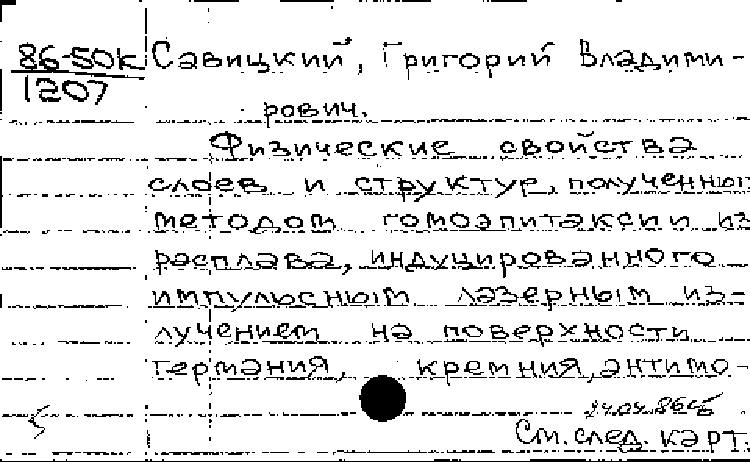 86-50к Савицкий, Григорий Владими-
1207
рович.
Физические свойства
слоев и структур, полученных
методом гомоэпитаксии из
расплава, индуцированного
импульсным лазерным из-
лучением на поверхности
германия, кремния, антимо-
См. след. карт.